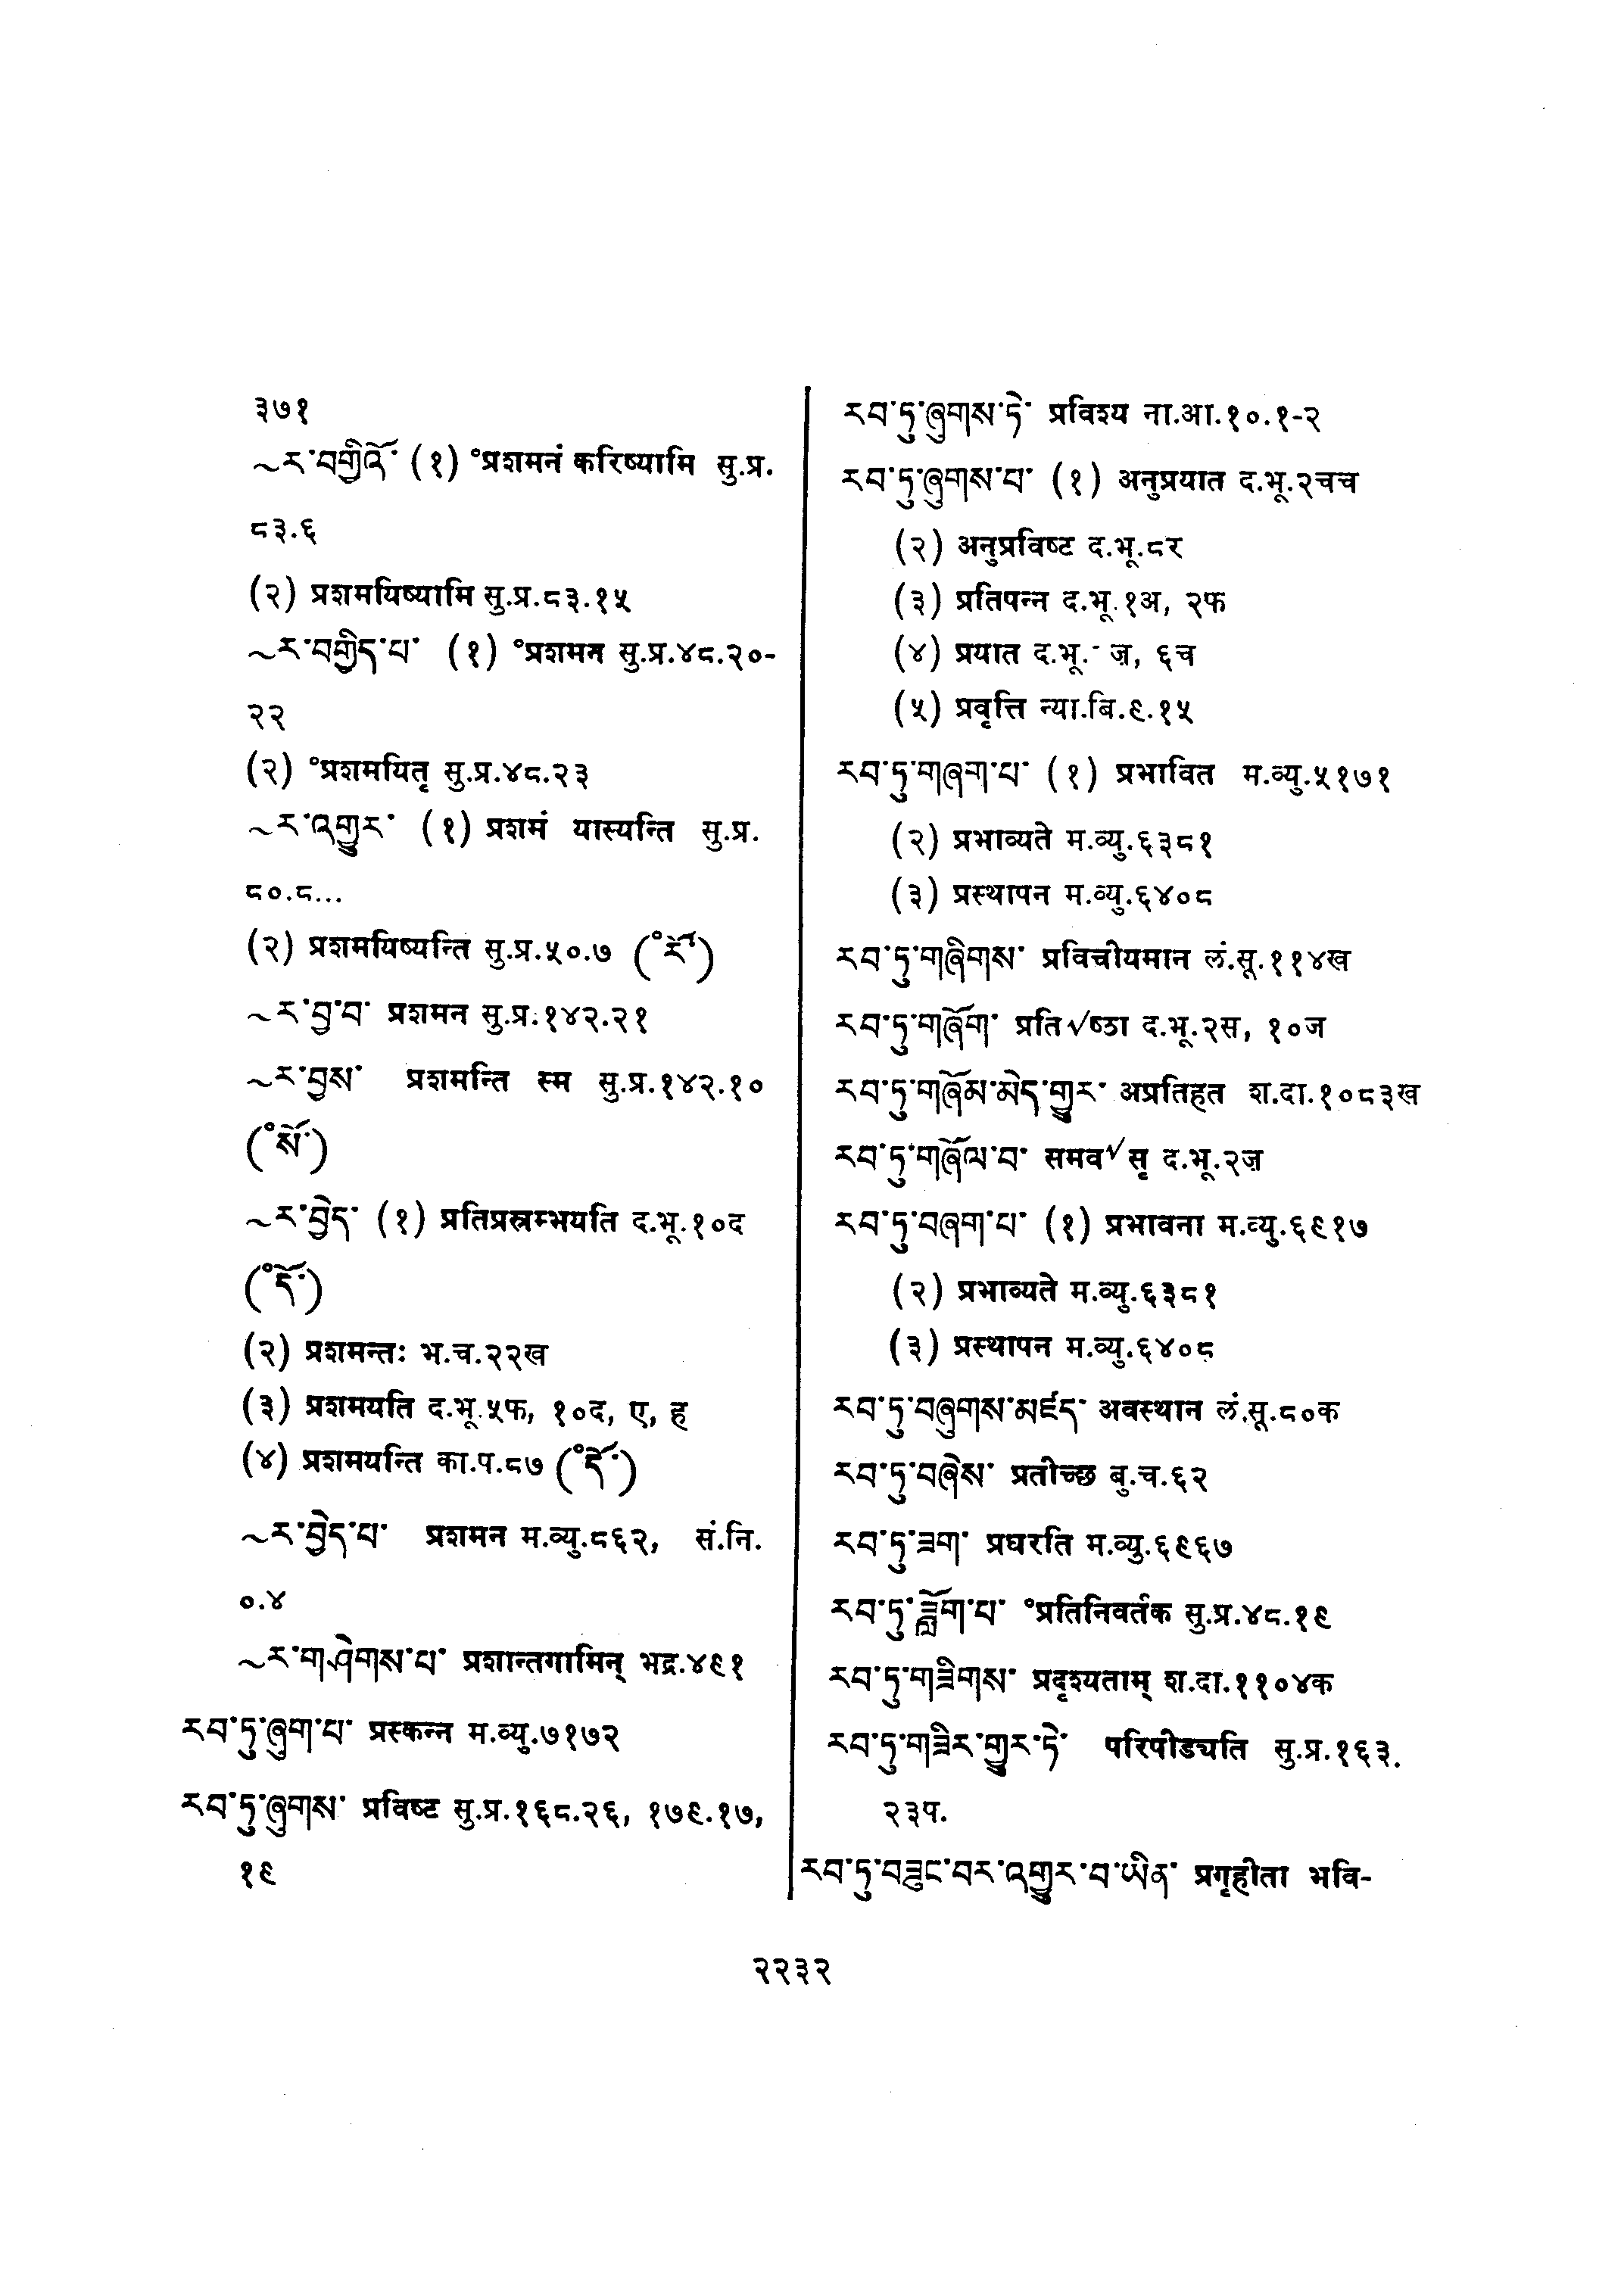 ३७१
~ར་བགྱིའོ་ (१) °प्रशमनं करिष्यामि सु.प्र.
८३.६
(२) प्रशमयिष्यामि सु.प्र.८३.१५
~ར་བགྱིད་པ་ (१) °प्रशमन सु.प्र.४८.२०-
२२
(२) °प्रशमयितृ सु.प्र.४८.२३
~ར་འགྱུར་ (१) प्रशमं यास्यन्ति सु.प्र.
८०.८...
(२) प्रशमयिष्यन्ति सु.प्र.५०.७ (°རོ་)
~ར་བྱ་བ་ प्रशमन सु.प्र.१४२.२१
~ར་བྱས་ प्रशमन्ति स्म सु.प्र.१४२.१०
(°སོ་)
~ར་བྱེད་ (१) प्रतिप्रस्रम्भयति द.भू.१०द
(°དོ་)
(२) प्रशमन्तः भ.च.२२ख
(३) प्रशमयति द.भू.५फ, १०द, ए, ह
(४) प्रशमयन्ति का.प.८७ (°དོ་)
~ར་བྱེད་པ་ प्रशमन म.व्यु.८६२, सं.नि.
०.४
~ར་གཤེགས་པ་ प्रशान्तगामिन् भद्र.४९१
རབ་ཏུ་ཞུག་པ་ प्रस्कन्न म.व्यु.७१७२
རབ་ཏུ་ཞུགས་ प्रविष्ट सु.प्र.१६८.२६, १७९.१७,
१९
རབ་ཏུ་ཞུགས་ཏེ་ प्रविश्य ना.आ.१०.१-२
རབ་ཏུ་ཞུགས་པ་ (१) अनुप्रयात द.भू.२चच
(२) अनुप्रविष्ट द.भू.८र
(३) प्रतिपन्न द.भू.१अ, २फ
(४) प्रयात द.भू.- ज़, ६च
(५) प्रवृत्ति न्या.बि.९.१५
རབ་ཏུ་གཞག་པ་ (१) प्रभावित म.व्यु.५१७१
(२) प्रभाव्यते म.व्यु.६३८१
(३) प्रस्थापन म.व्यु.६४०८
རབ་ཏུ་གཞིགས་ प्रविचीयमान लं.सू.११४ख
རབ་ཏུ་གཞོག་ प्रति√ष्ठा द.भू.२स, १०ज
རབ་ཏུ་གཞོམ་མེད་གྱུར་ अप्रतिहत श.दा.१०८३ख
རབ་ཏུ་གཞོལ་བ་ समव√सृ द.भू.२ज़
རབ་ཏུ་བཞག་པ་ (१) प्रभावना म.व्यु.६९१७
(२) प्रभाव्यते म.व्यु.६३८१
(३) प्रस्थापन म.व्यु.६४०८
རབ་ཏུ་བཞུགས་མཛད་ अवस्थान लं.सू.८०क
རབ་ཏུ་བཞེས་ प्रतीच्छ बु.च.६२
རབ་ཏུ་ཟག་ प्रघरति म.व्यु.६९६७
རབ་ཏུ་ཟློག་པ་ °प्रतिनिवर्तक सु.प्र.४८.१९
རབ་ཏུ་གཟིགས་ प्रदृश्यताम् श.दा.११०४क
རབ་ཏུ་གཟིར་གྱུར་ཏེ་ परिपीड्यति सु.प्र.१६३.
२३प.
རབ་ཏུ་བཟུང་བར་འགྱུར་བ་ཡིན་ प्रगृहीता भवि-
२२३२